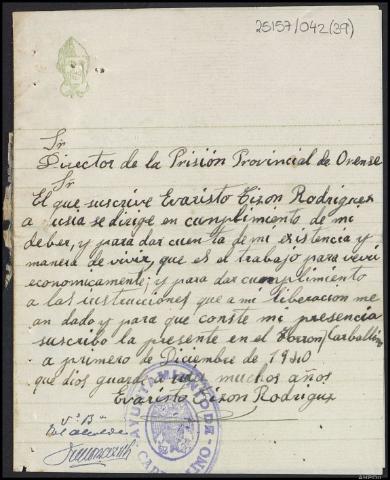 25157/042(39)
Sr
Director de la Prisión Provincial de Orense
Sr
El que suscrive Evaristo Tizon Rodriguez
a usia se dirige en cumplimiento de mi
deber, y para dar cuenta de mi existencia y
manera de vivir, que es el trabajo para vevir
economicamente; y para dar cumplimiento
a las instrucciones que a mi liberacion me
an dado y para que conste mi presencia
suscribo la presente en el Carballino
a primero de Diciembre de 1940
que dios guarde a muchos años
Evaristo Tizon Rodriguez
Vº Bº
El alcalde
AYUNTAMIENTO DE CARBALLINO